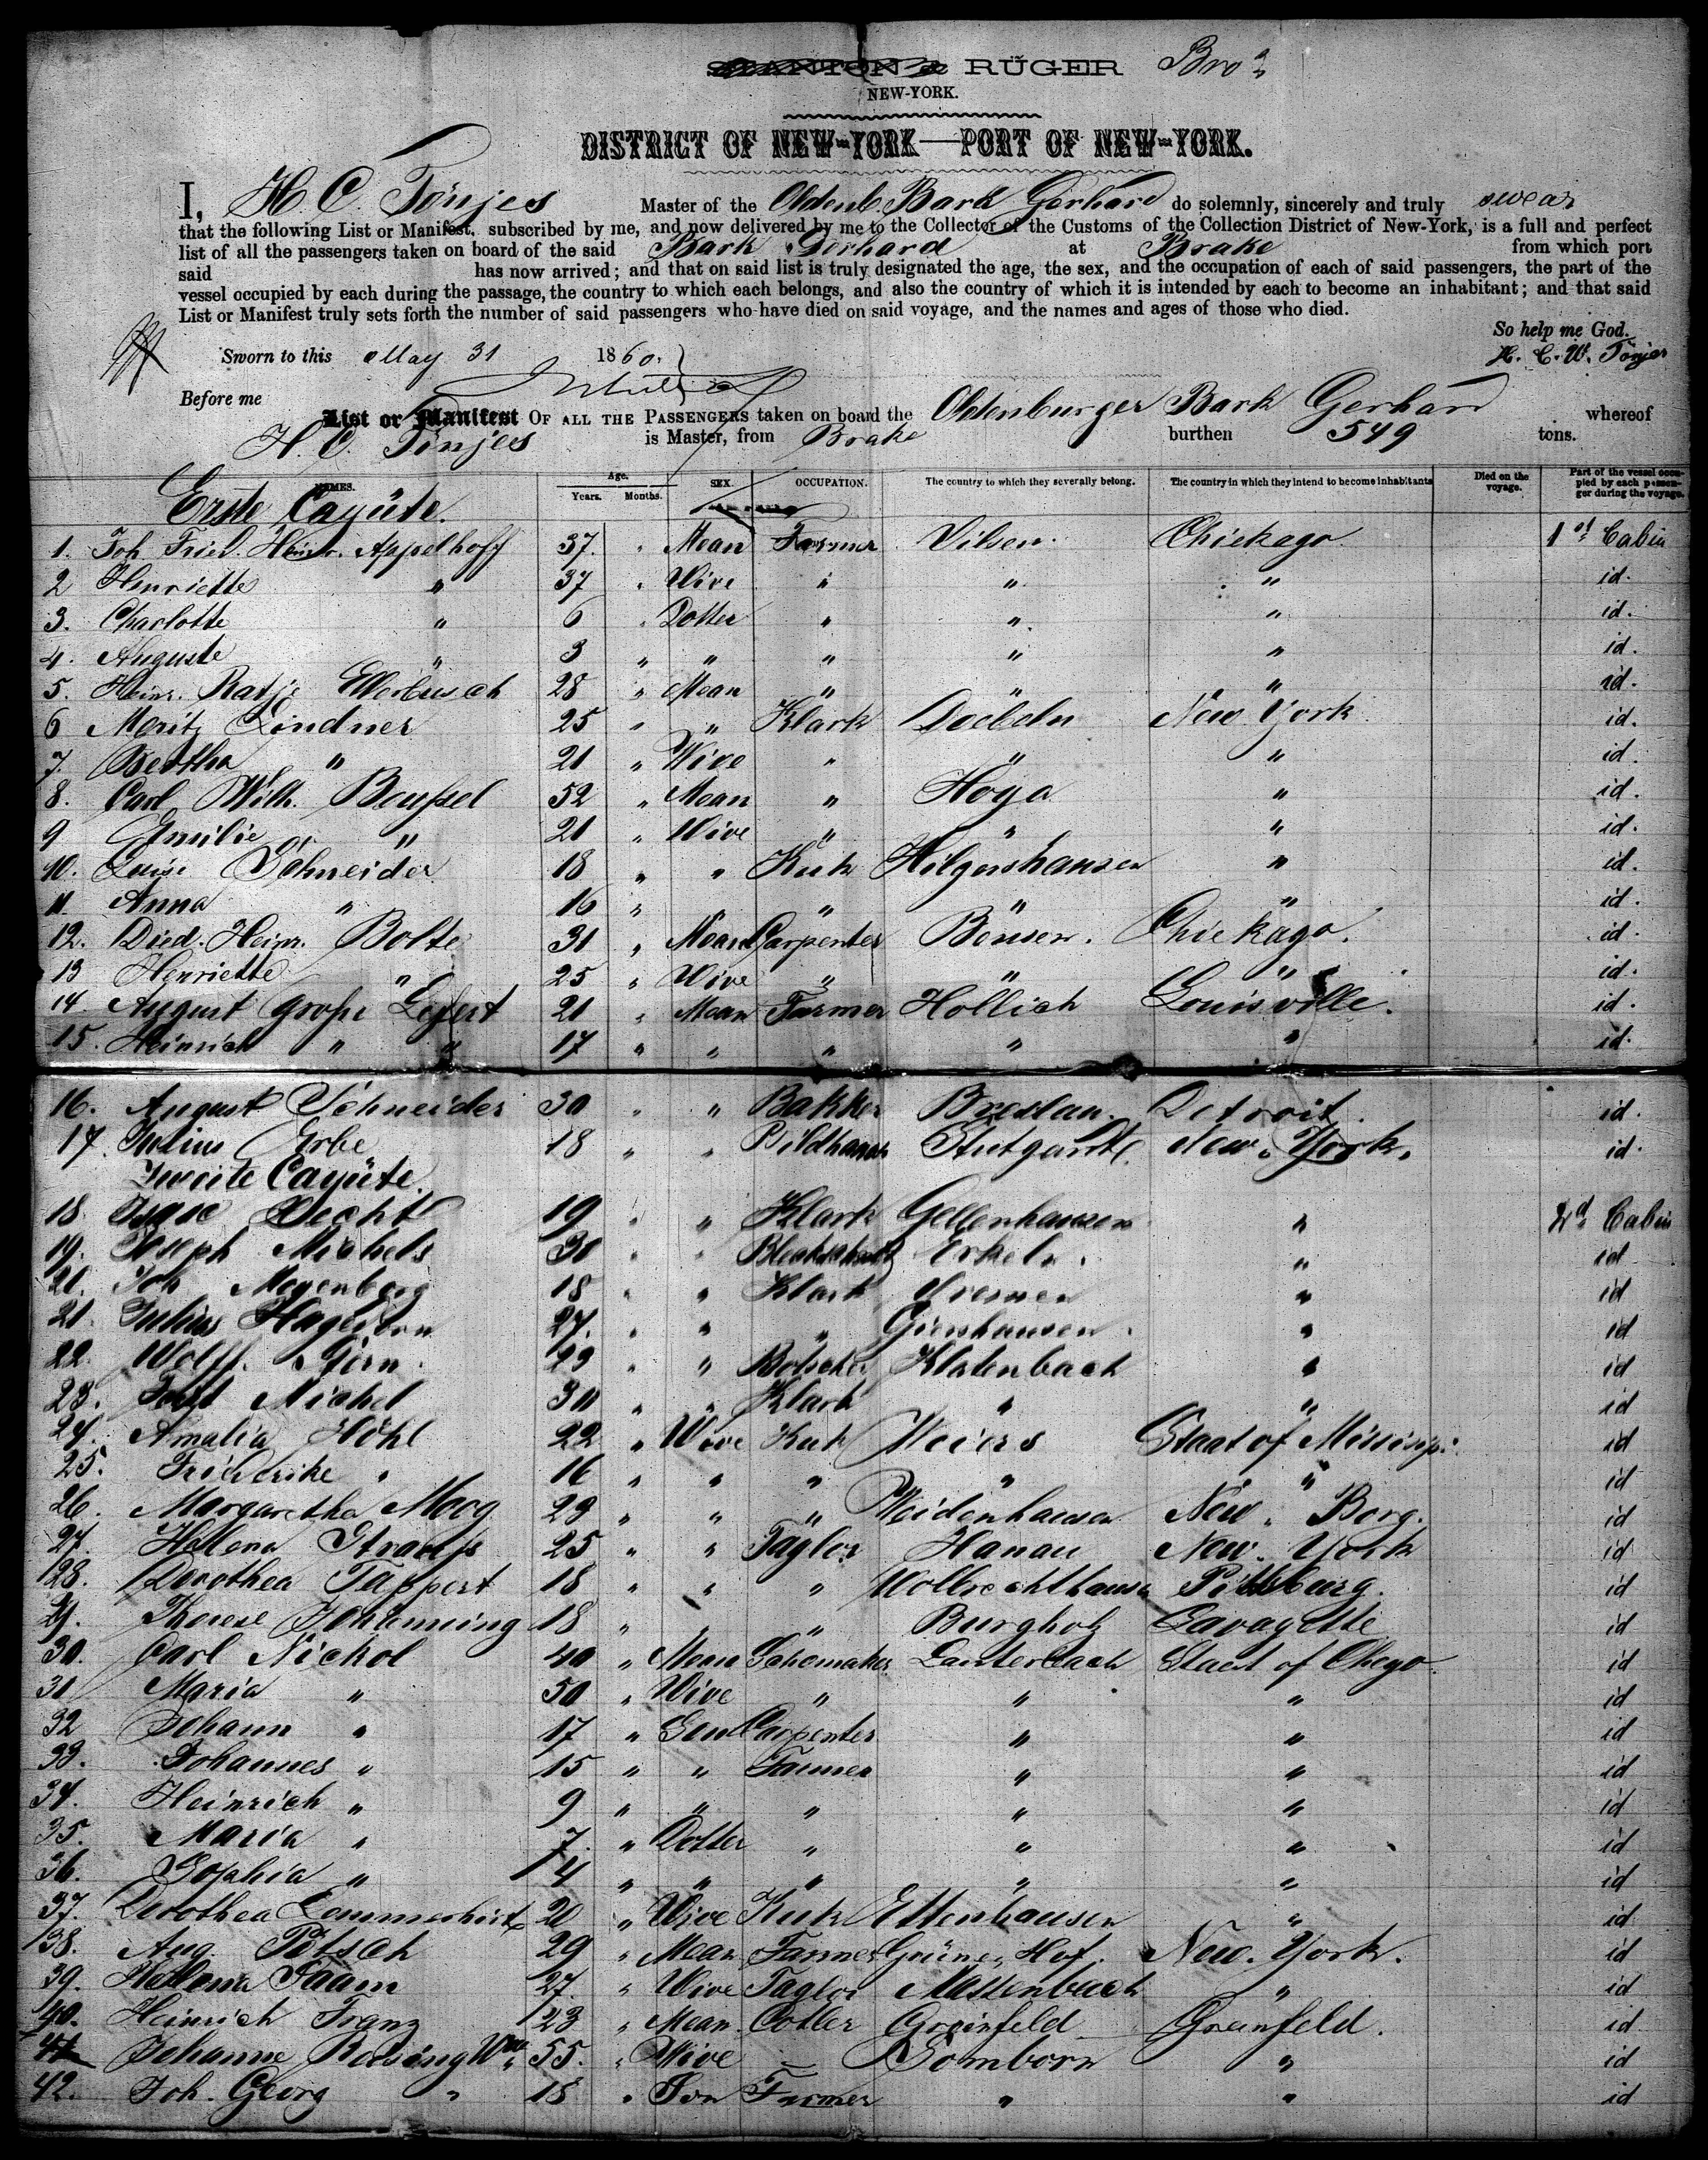 RÜGER Bros
NEW-YORK.
DISTRICT OF NEW-YORK—PORT OF NEW-YORK.
I, H. C. Tönjes Master of the Oldenb. Bark Gerhard do solemnly, sincerely and truly swear
that the following List or Manifest, subscribed by me, and now delivered by me to the Collector of the Customs of the Collection District of New-York, is a full and perfect
list of all the passengers taken on board of the said Bark Gerhard at Brake from which port
said has now arrived; and that on said list is truly designated the age, the sex, and the occupation of each of said passengers, the part of the
vessel occupied by each during the passage, the country to which each belongs, and also the country of which it is intended by each to become an inhabitant; and that said
List or Manifest truly sets forth the number of said passengers who have died on said voyage, and the names and ages of those who died.
So help me God.
Sworn to this May 31 1860. H. C. W. Tönjes
Before me
List or Manifest OF ALL THE PASSENGERS taken on board the Oldenburger Bark Gerhard whereof
H. C. Tönjes is Master, from Brake burthen 549 tons.
NAMES. Age. Years. Months. SEX. OCCUPATION. The country to which they severally belong. The country in which they intend to become inhabitants Died on the voyage. Part of the vessel occupied by each passenger during the voyage.
Erste Cayüte.
1. Joh. Fried. Heinr. Appelhoff 37. " Mean Farmer Vilsen. Chickago. 1st Cabin
2 Henriette " 37 " Wive " " " id.
3. Charlotte " 6 " Dotter " " " id.
4. Auguste " 3 " " " " " id.
5. Heinr. Ratje Ellerbusch 28 " Mean " " " id.
6 Moritz Lindner 25 " " Klark Doebeln New York id.
7. Bertha " 21 " Wive " " " id.
8. Carl Wilh. Beußel 52 " Mean " Hoya " id.
9 Emilie " 21 " Wive " " " id.
10. Luise Schneider 18 " " Kuk Hilgershausen " id.
11. Anna " 16 " " " " " id.
12. Died. Heinr. Bolte 31 " Mean Carpenter Bensen. Chickago. id.
13 Henriette " 25 " Wive " " " id.
14 August Große Lefert 21 " Mean Farmer Hollich Louisville. id.
15. Heinrich " " 17 " " " " " id.
16. August Schneider 30 " " Bakker Breslau. Detroit. id.
17. Julius Erbe 18 " " Bildhauer Stutgardt. New-York. id.
Zweite Cayüte.
18 Isaac Hecht 19 " " Klark Gellenhausen " 2d Cabin
19. Joseph Michels 30 " " Erkeln. " id
20. Joh Meyenberg 18 " " Klark Bremen " id
21. Julius 27. " " " Giershausen. " id
22. Wolff " " " id
23. Michel 30 " " Klark " " id
24. Amalia Höhl 22 " Wive Kuk Weiers Staat of Missisipi. id
25. Friederike " 16 " " " " " id
26. Margaretha Moog 23 " " " Weidenhausen New Borg. id
27. Helena 25 " " Taylor Hanau New. York id
28. Dorothea Tappert 18 " " " Wolbrechthausen Pittsburg. id
29. Therese 18 " " " Burgholz Lavayette id
30. Carl Nickol 40 " Mean Schomaker Lauterbach Staat of Oheyo. id
31 Maria " 50 " Wive " " " id
32 Johann " 17 " Son Carpenter " " id
33. Johannes " 15 " " Farmer " " id
34. Heinrich " 9 " " " " " id
35. Maria " 7. " Dotter " " " id
36. Sophia " 4 " " " " " id
37. Dorothea 20 " Wive Kuk Ettenhausen " id
38. Aug. Pätsch 29 " Mean Farmer Grüne. Hof. New. York. id
39. Helena 27. " Wive Taylor " id
40. Heinrich Franz 23 " Mean Grünfeld. id
41 Johanne 55. " Wive — Somborn " id
42. Joh. Georg " 18 " Son Farmer " " id